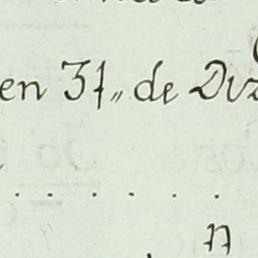 en 31„ de Diz
n